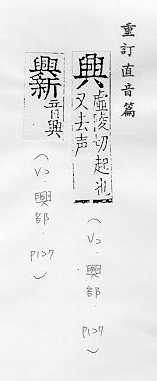 重訂直音篇
興 虛陵切起也
又去声
（V2．興部．P127）
音興
（V2．興部．P127）